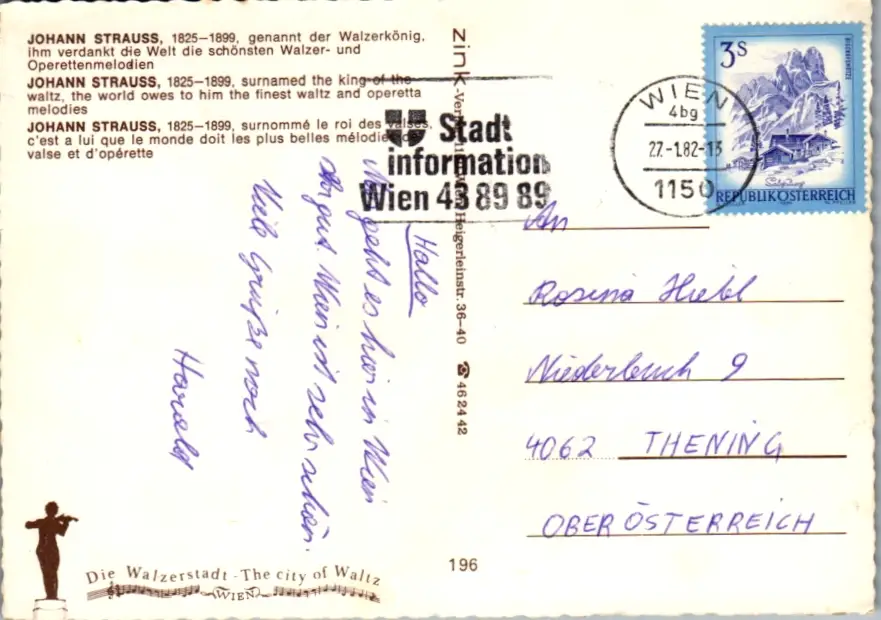 JOHANN STRAUSS, 1825-1899, genannt der Walzerkönig,
ihm verdankt die Welt die schönsten Walzer- und
Operettenmelodien
JOHANN STRAUSS, 1825-1899, surnamed the king of the
waltz, the world owes to him the finest waltz and operetta
melodies
JOHANN STRAUSS, 1825-1899, surnommé le roi des valses,
c'est a lui que le monde doit les plus belles mélodies de
valse et d'opérette
Stadt
information
Wien 43 89 89
WIEN
4bg
27.-1.82-13
1150
3S
REPUBLIK ÖSTERREICH
zink
Heigerleinstr. 36-40 ☎ 46 24 42
Hallo
geht es hier in Wien
gut. Wien ist sehr schön.
Viele Grüße noch
Harald
An
Rosina Hiebl
Niederbuch 9
4062 THENING
OBERÖSTERREICH
Die Walzerstadt - The city of Waltz
WIEN
196